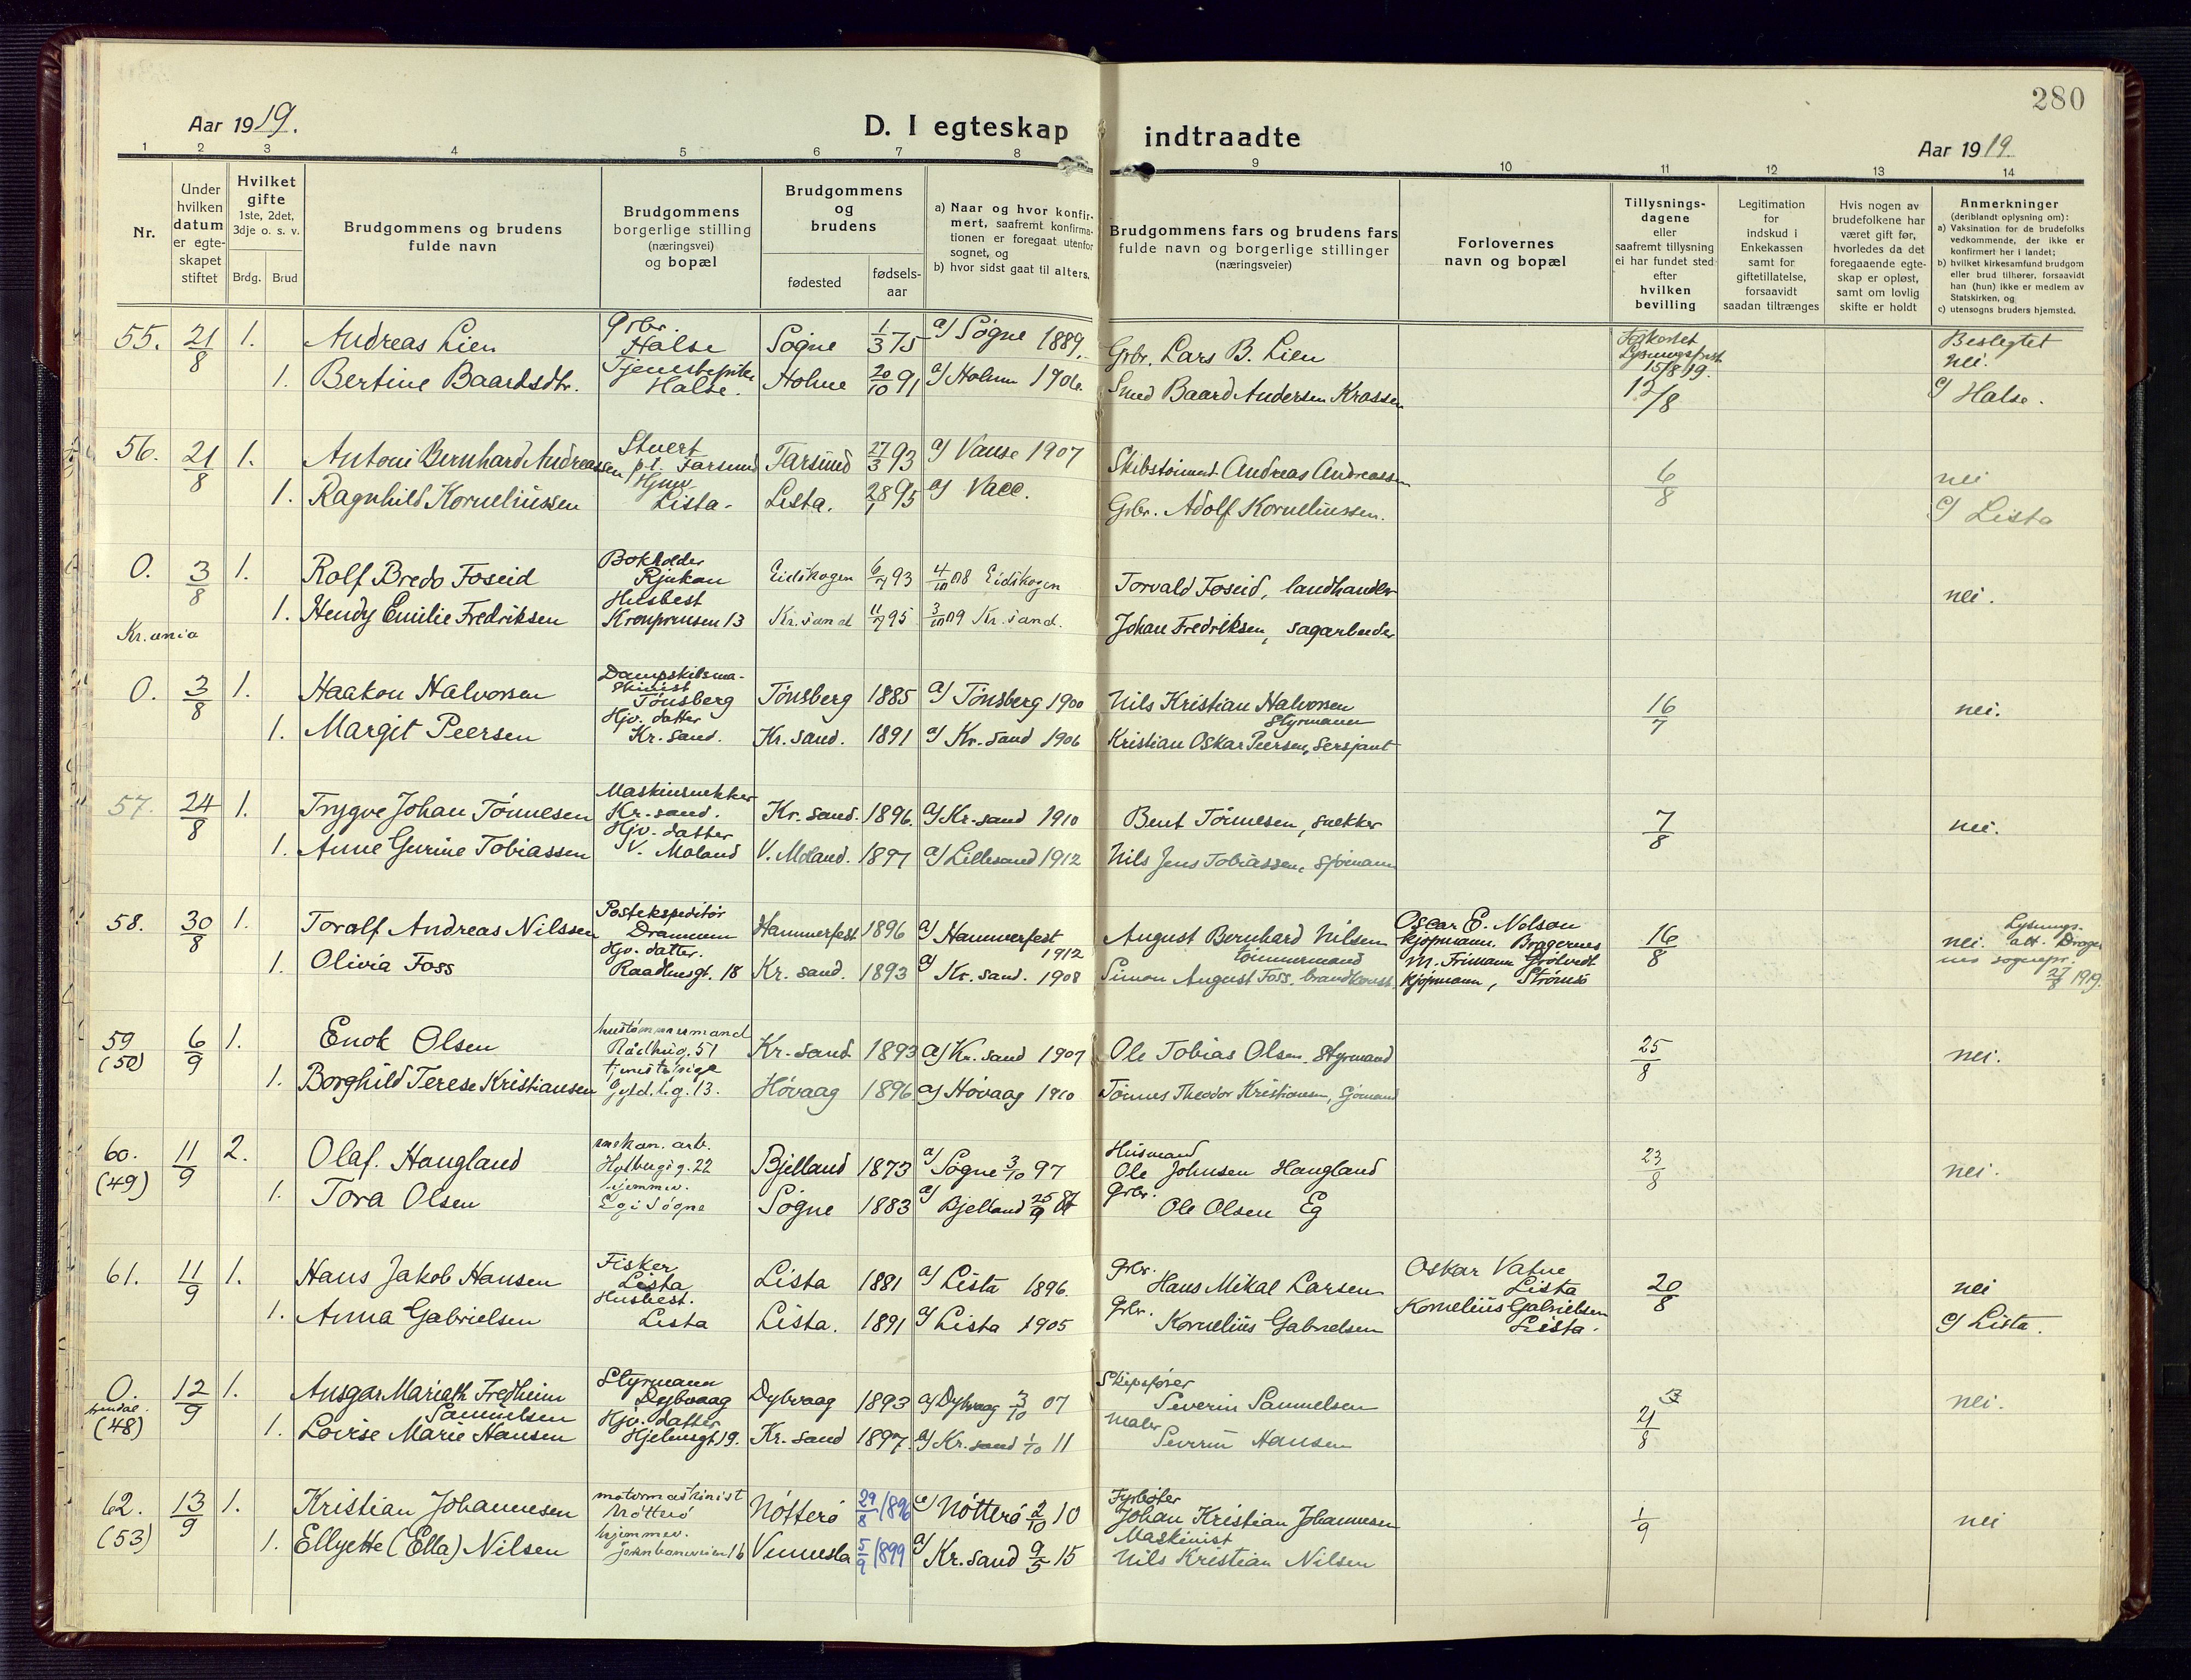 280
Aar 1919.
D. I egteskap indtraadte
Aar 1919.
1 2 3 4 5 6 7 8 9 10 11 12 13 14
Nr.
Under hvilken datum er egte-skapet stiftet
Hvilket gifte 1ste, 2det, 3dje o. s. v.
Brdg. Brud
Brudgommens og brudens fulde navn
Brudgommens borgerlige stilling (næringsvei) og bopæl
Brudgommens og brudens
fødested
fødsels-aar
a) Naar og hvor konfir-mert, saafremt konfirma-tionen er foregaat utenfor sognet, og
b) hvor sidst gaat til alters.
Brudgommens fars og brudens fars fulde navn og borgerlige stillinger (næringsveier)
Forlovernes navn og bopæl
Tillysnings-dagene eller saafremt tillysning ei har fundet sted efter hvilken bevilling
Legitimation for indskud i Enkekassen samt for giftetillatelse, forsaavidt saadan tiltrænges
Hvis nogen av brudefolkene har været gift før, hvorledes da det foregaaende egte-skap er opløst, samt om lovlig skifte er holdt
Anmerkninger (deriblandt oplysning om):
a) Vaksination for de brudefolks vedkommende, der ikke er konfirmert her i landet;
b) hvilket kirkesamfund brudgom eller brud tilhører, forsaavidt han (hun) ikke er medlem av Statskirken, og
c) utensogns bruders hjemsted.
55. 21/8 1. Andreas Lien Grbr. Halse Søgne 1/3 75 a) Søgne 1889. Grbr. Lars B. Lien Lysningsfrist 15/8 19. Beslegtet nei.
1. Bertine Baardsdtr. Halse. Holme 20/10 91 a) Holum 1906. Smed Baard Andersen Krossen 12/8 c) Halse.
56. 21/8 1. Antoni Bernhard Andreassen Stuert p.t. Farsund Farsund 27/3 93 a) Vanse 1907 Andreas Andreassen 6/8 nei
1. Ragnhild Korneliussen Hjmv. Lista. Lista. 28/1 95 a) Vacc. Grbr. Adolf Korneliussen. c) Lista
0. 3/8 1. Rolf Bredo Foseid Bokholder Rjukan Eidskogen 6/7 93 4/10 08 Eidskogen Torvald Foseid, landhandler nei.
1. Hendy Emilie Fredriksen Husbest Kronprinsen 13 Kr.sand 11/7 95 3/10 09 Kr.sand. Johan Fredriksen, sagarbeider
Kr.ania
0. 3/8 1. Haakon Halvorsen Dampskibsma-skinist Tønsberg Tønsberg 1885 a) Tønsberg 1900 Nils Kristian Halvorsen Styrmann 16/7 nei.
1. Margit Peersen Hjv. datter Kr.sand. Kr.sand. 1891 a) Kr.sand 1906 Kristian Oskar Peersen, Sersjant
57. 24/8 1. Trygve Johan Tønnesen Maskinsnekker Kr.sand. Kr.sand. 1896. a) Kr.sand 1910 Bent Tønnesen, snekker 7/8 nei.
1. Anne Gurine Tobiassen Hjv. datter V. Moland V. Moland. 1897 a) Lillesand 1912 Nils Jens Tobiassen, sjømann
58. 30/8 1. Toralf Andreas Nilssen Postekspeditør Drammen Hammerfest 1896 a) Hammerfest 1912 August Bernhard Nilsen tømmermand Oscar E. Nelson kjøpmann, Bragernes 16/8 nei. Lysnings-att. Brager-nes sognepr. 27/8 1919.
1. Olivia Foss Hjv. datter. Raadhusgt. 18 Kr.sand. 1893 a) Kr.sand. 1908 Simon August Foss, brandkonst. kjøpmann, Strømsø
59 (50) 6/9 1. Enok Olsen hustømmermand Rådhusg. 51 Kr.sand 1893 a) Kr.sand 1907 Ole Tobias Olsen. Styrmand 25/8 nei.
1. Borghild Terese Kristiansen tjenestepige Gyld.l.g. 13. Høvaag 1896 a) Høvaag 1910 Tønnes Theodor Kristiansen, Sjømand
60. (49) 11/9 2. Olaf. Haugland mekan. arb. Holbergsg. 22 Bjelland 1873 a) Søgne 3/10 97 Husmand Ole Johnsen Haugland 23/8 nei.
1. Tora Olsen hjemmev. Eg i Søgne Søgne 1883 a) Bjelland 25/9 87 Grbr. Ole Olsen Eg
61. 11/9 1. Hans Jakob Hansen Fisker Lista Lista 1881 a) Lista 1896. Grbr. Hans Mikal Larsen Oskar Vatne Lista 20/8 nei
1. Anna Gabrielsen Husbest. Lista Lista. 1891 a) Lista 1905 Grbr. Kornelius Gabrielsen Kornelius Gabrielsen Lista. c) Lista.
0. Arendal. (48) 12/9 1. Ansgar Mariath Fredheim Samuelsen Styrmann Dybvaag Dybvaag 1893 a) Dybvaag 3/10 07 Skipsfører Severin Samuelsen 21/8 nei.
1. Lovise Marie Hansen Hjv. datter Hjelmsgt. 19. Kr.sand 1897. a) Kr.sand 1/10 11 Maler Severin Hansen
62. (53) 13/9 1. Kristian Johannesen motormaskinist Nøtterø Nøtterø 29/8 1896 a) Nøtterø 2/10 10 Fyrbøter Johan Kristian Johannesen 1/9 nei
1. Ellyette (Ella) Nilsen hjemmev. jernbaneveien 16 Vennesla 5/9 1899 a) Kr.sand 9/5 15 Maskinist Nils Kristian Nilsen